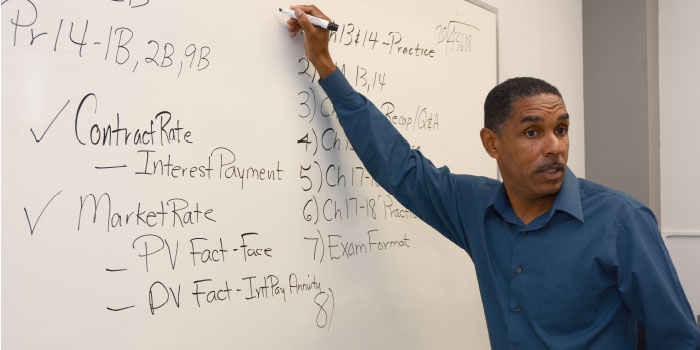 Pr 14-1B, 2B, 9B
✓ Contract Rate
— Interest Payment
✓ Market Rate
— PV Fact-Face
— PV Fact-IntPay Annuity
Ch 13 & 14 - Practice
2) 13, 14
3) Recap/Q&A
4)
5) Ch 17-
6) Ch 17-18 Practice
7) Exam Format
8)